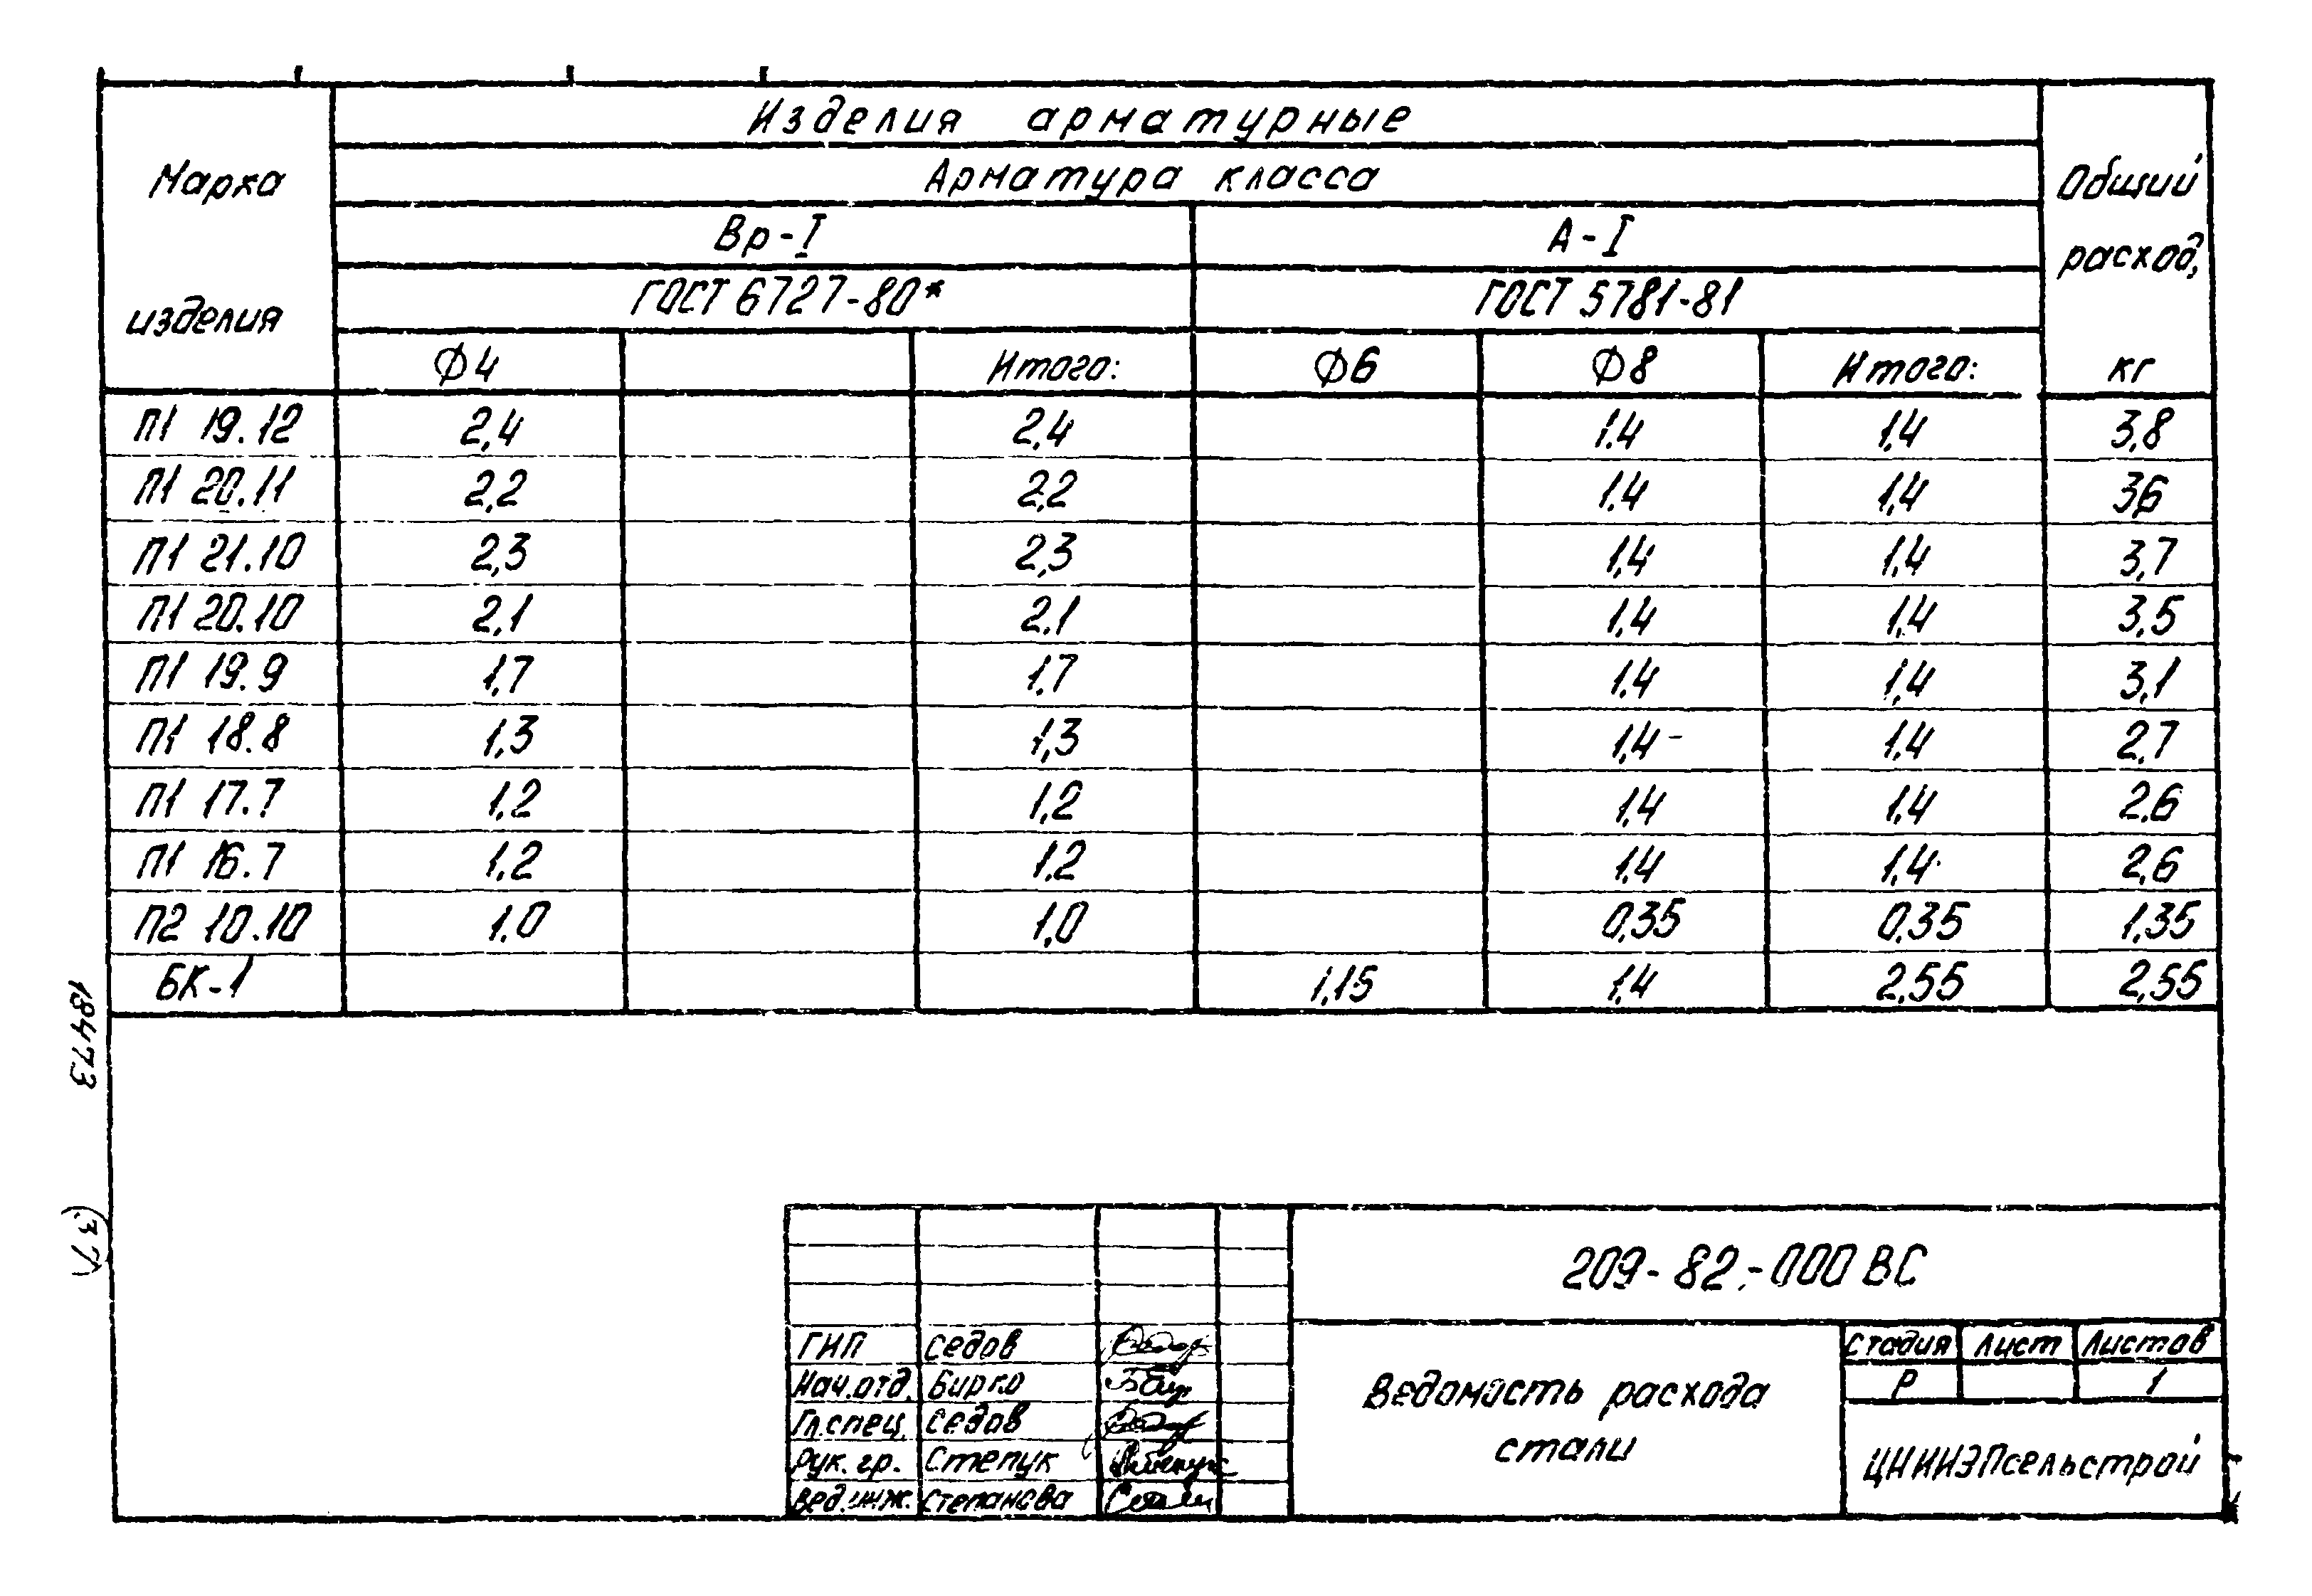 Марка изделия
Изделия арматурные
Общий расход, кг
Арматура класса
Вр-I А-I
ГОСТ 6727-80* ГОСТ 5781-81
Ф4 Итого: Ф6 Ф8 Итого:
П1 19.12 2,4 2,4 1.4 1,4 3,8
П1 20.11 2,2 2,2 1,4 1,4 3,6
П1 21.10 2,3 2,3 1,4 1,4 3,7
П1 20.10 2,1 2.1 1,4 1,4 3,5
П1 19.9 1,7 1,7 1.4 1,4 3,1
П1 18.8 1,3 1,3 1,4 1,4 2,7
П1 17.7 1,2 1,2 1,4 1,4 2,6
П1 16.7 1,2 1,2 1,4 1,4 2,6
П2 10.10 1,0 1,0 0,35 0,35 1,35
БК-1 1,15 1,4 2,55 2,55
18473
(37)
209-82.-000 ВС
ГИП Седов
Нач.отд. Бирко
Гл.спец. Седов
Рук. гр. Степук
Вед.инж. Степанова
Ведомость расхода
стали
Стадия Лист Листов
Р 1
ЦНИИЭПсельстрой